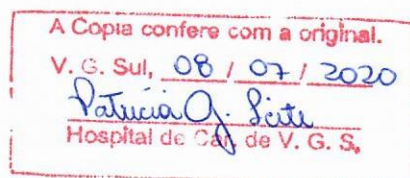 A Copia confere com a original.
V. G. Sul, 08 / 07 / 2020
Patrucia O. Leite
Hospital de Car. de V. G. S.